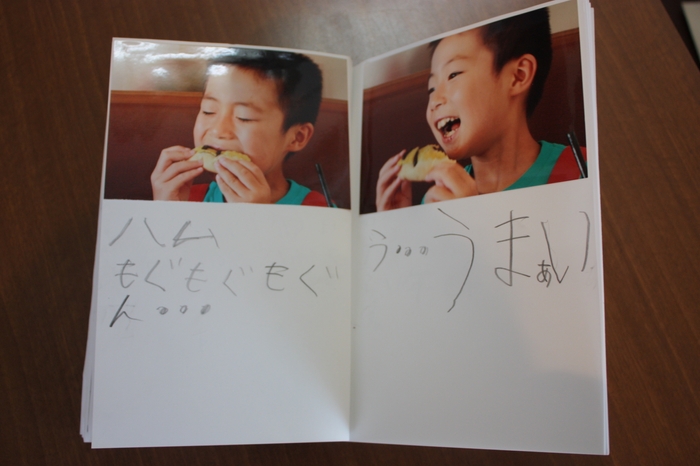 ハム
もぐもぐもぐ
ん。。。
う。。。うまぁい